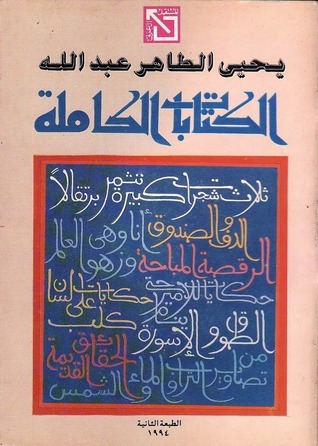 يحيى الطاهر عبد الله
الكتابات الكاملة
ثلاث شجرات كبيرة تثمر برتقالاً
الدف والصندوق
أنا وهي وزهور العالم
الرقصة المباحة
حكايات للأمير حتى ينام
حكايات على لسان كلب
الطوق والإسورة
الحقائق القديمة
تصاوير من التراب والماء والشمس
الطبعة الثانية
١٩٩٤